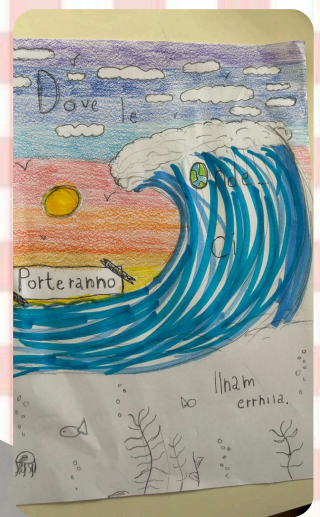 Dove le
onde...
Ci
Porteranno
Ilham
errhila.